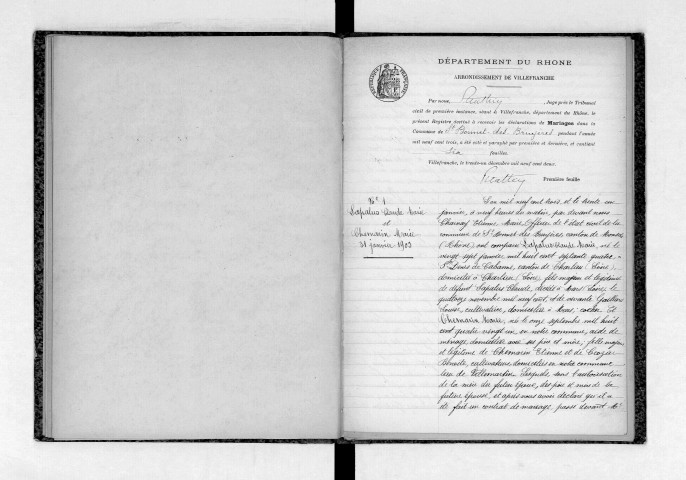 DÉPARTEMENT DU RHONE
ARRONDISSEMENT DE VILLEFRANCHE
Par nous, , Juge près le Tribunal
civil de première instance, séant à Villefranche, département du Rhône, le
présent Registre destiné à recevoir les déclarations de Mariages dans la
Commune de St Bonnet-des-Bruyères pendant l'année
mil neuf cent trois, a été coté et paraphé par première et dernière, et contient
six feuilles.
Villefranche, le trente-un décembre mil neuf cent deux.
Première feuille
No 1
Lapalus Claude Marie
et
Chemarin Marie
31 janvier 1903
L'an mil neuf cent trois, et le trente un
janvier, à neuf heures du matin, par devant nous
Charnay Etienne, Maire, Officier de l'état civil de la
commune de St Bonnet des Bruyères canton de Monsols
(Rhône) ont comparu Lapalus Claude Marie, né le
vingt sept janvier mil huit cent septante quatre, à
St Denis de Cabanne, canton de Charlieu (Loire),
domicilié à Charlieu (Loire), fils majeur et légitime
de défunt Lapalus Claude, décédé à Mars (Loire) le
quatorze novembre mil neuf cent, et de vivante
Louise, cultivatrice, domiciliée à Mars; Et
Chemarin Marie, née le onze septembre mil huit
cent quatre vingt un, en notre commune, aide de
ménage, domiciliée avec ses père et mère; fille majeure
et légitime de Chemarin Etienne et de
Benoite, cultivateurs, domiciliés en notre commune
lieu de Lesquels, sous l'autorisation
de la mère du futur époux, des père et mère de la
future épouse, et après nous avoir déclaré qu'il a
été fait un contrat de mariage passé devant Me